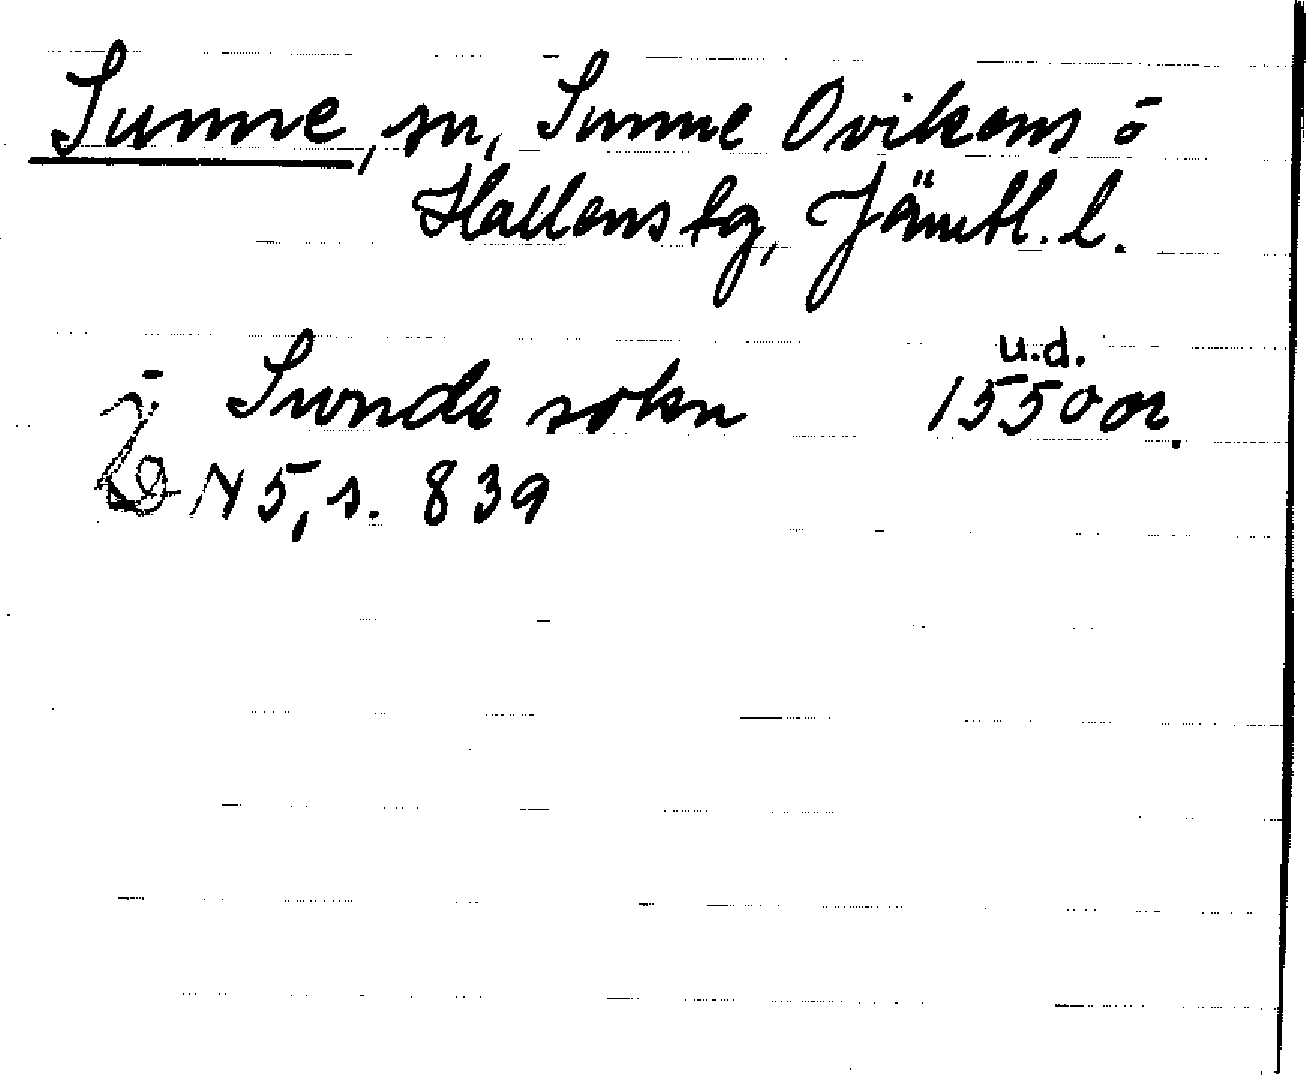 Sunne, sn, Sunne Ovikens o
Hallens tg, Jämtl. l.
i Sunde sokn u.d. 1550 or.
DN 5, s. 839